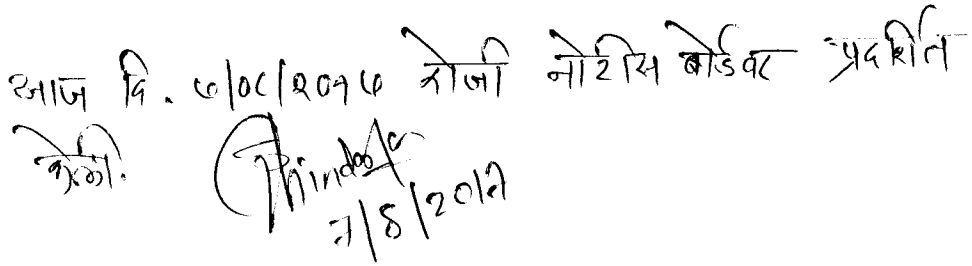 आज दि. ७/०८/२०१७ रोजी नोटीस बोर्डवर प्रदर्शित
केली.
7/8/2017